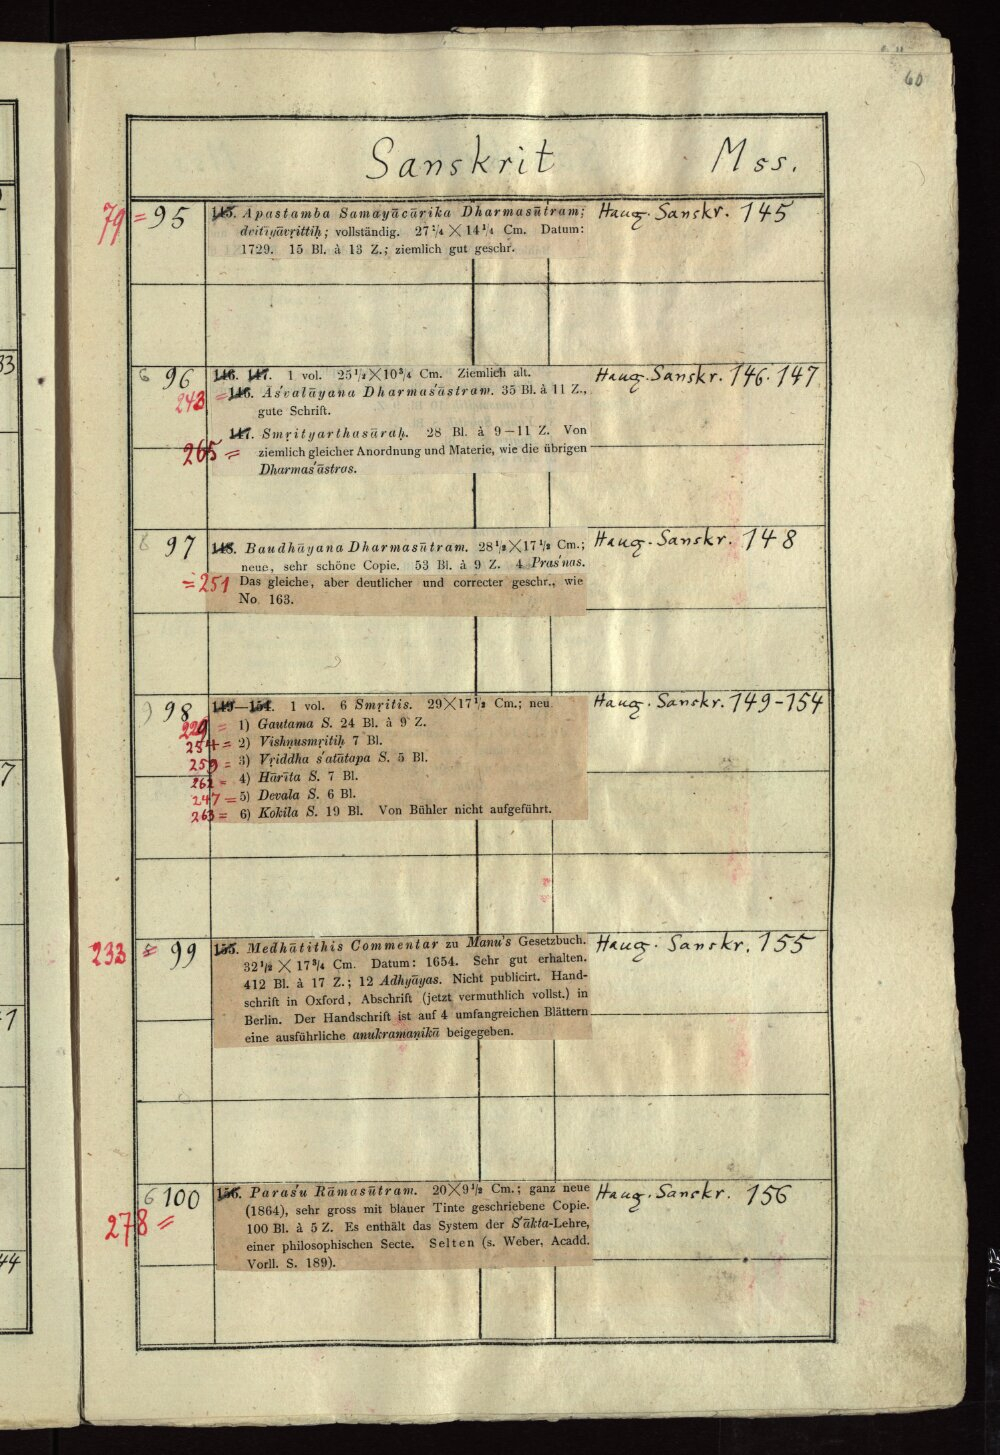 60
Sanskrit Mss.
79 = 95 145. Apastamba Samayācārika Dharmasūtram; Haug. Sanskr. 145
dvitīyāvṛittiḥ; vollständig. 27 1/4 × 14 1/4 Cm. Datum:
1729. 15 Bl. à 13 Z.; ziemlich gut geschr.
96 146. 147. 1 vol. 25 1/2 × 10 3/4 Cm. Ziemlich alt. Haug. Sanskr. 146. 147
243 = 146. As'valāyana Dharmas'āstram. 35 Bl. à 11 Z.,
gute Schrift.
265 = 147. Smṛityarthasāraḥ. 28 Bl. à 9—11 Z. Von
ziemlich gleicher Anordnung und Materie, wie die übrigen
Dharmas'āstras.
97 148. Baudhāyana Dharmasūtram. 28 1/2 × 17 1/2 Cm.; Haug. Sanskr. 148
neue, sehr schöne Copie. 53 Bl. à 9 Z. 4 Pras'nas.
= 251 Das gleiche, aber deutlicher und correcter geschr., wie
No. 163.
98 149—154. 1 vol. 6 Smṛitis. 29 × 17 1/2 Cm.; neu. Haug. Sanskr. 149-154
229 = 1) Gautama S. 24 Bl. à 9 Z.
254 = 2) Vishṇusmṛitiḥ 7 Bl.
259 = 3) Vṛiddha s'atātapa S. 5 Bl.
262 = 4) Hārīta S. 7 Bl.
247 = 5) Devala S. 6 Bl.
263 = 6) Kokila S. 19 Bl. Von Bühler nicht aufgeführt.
233 = 99 155. Medhātithis Commentar zu Manu's Gesetzbuch. Haug. Sanskr. 155
32 1/2 × 17 3/4 Cm. Datum: 1654. Sehr gut erhalten.
412 Bl. à 17 Z.; 12 Adhyāyas. Nicht publicirt. Hand-
schrift in Oxford, Abschrift (jetzt vermuthlich vollst.) in
Berlin. Der Handschrift ist auf 4 umfangreichen Blättern
eine ausführliche anukramaṇikā beigegeben.
100 156. Paras'u Rāmasūtram. 20 × 9 1/2 Cm.; ganz neue Haug. Sanskr. 156
278 = (1864), sehr gross mit blauer Tinte geschriebene Copie.
100 Bl. à 5 Z. Es enthält das System der S'ākta-Lehre,
einer philosophischen Secte. Selten (s. Weber, Acadd.
Vorll. S. 189).